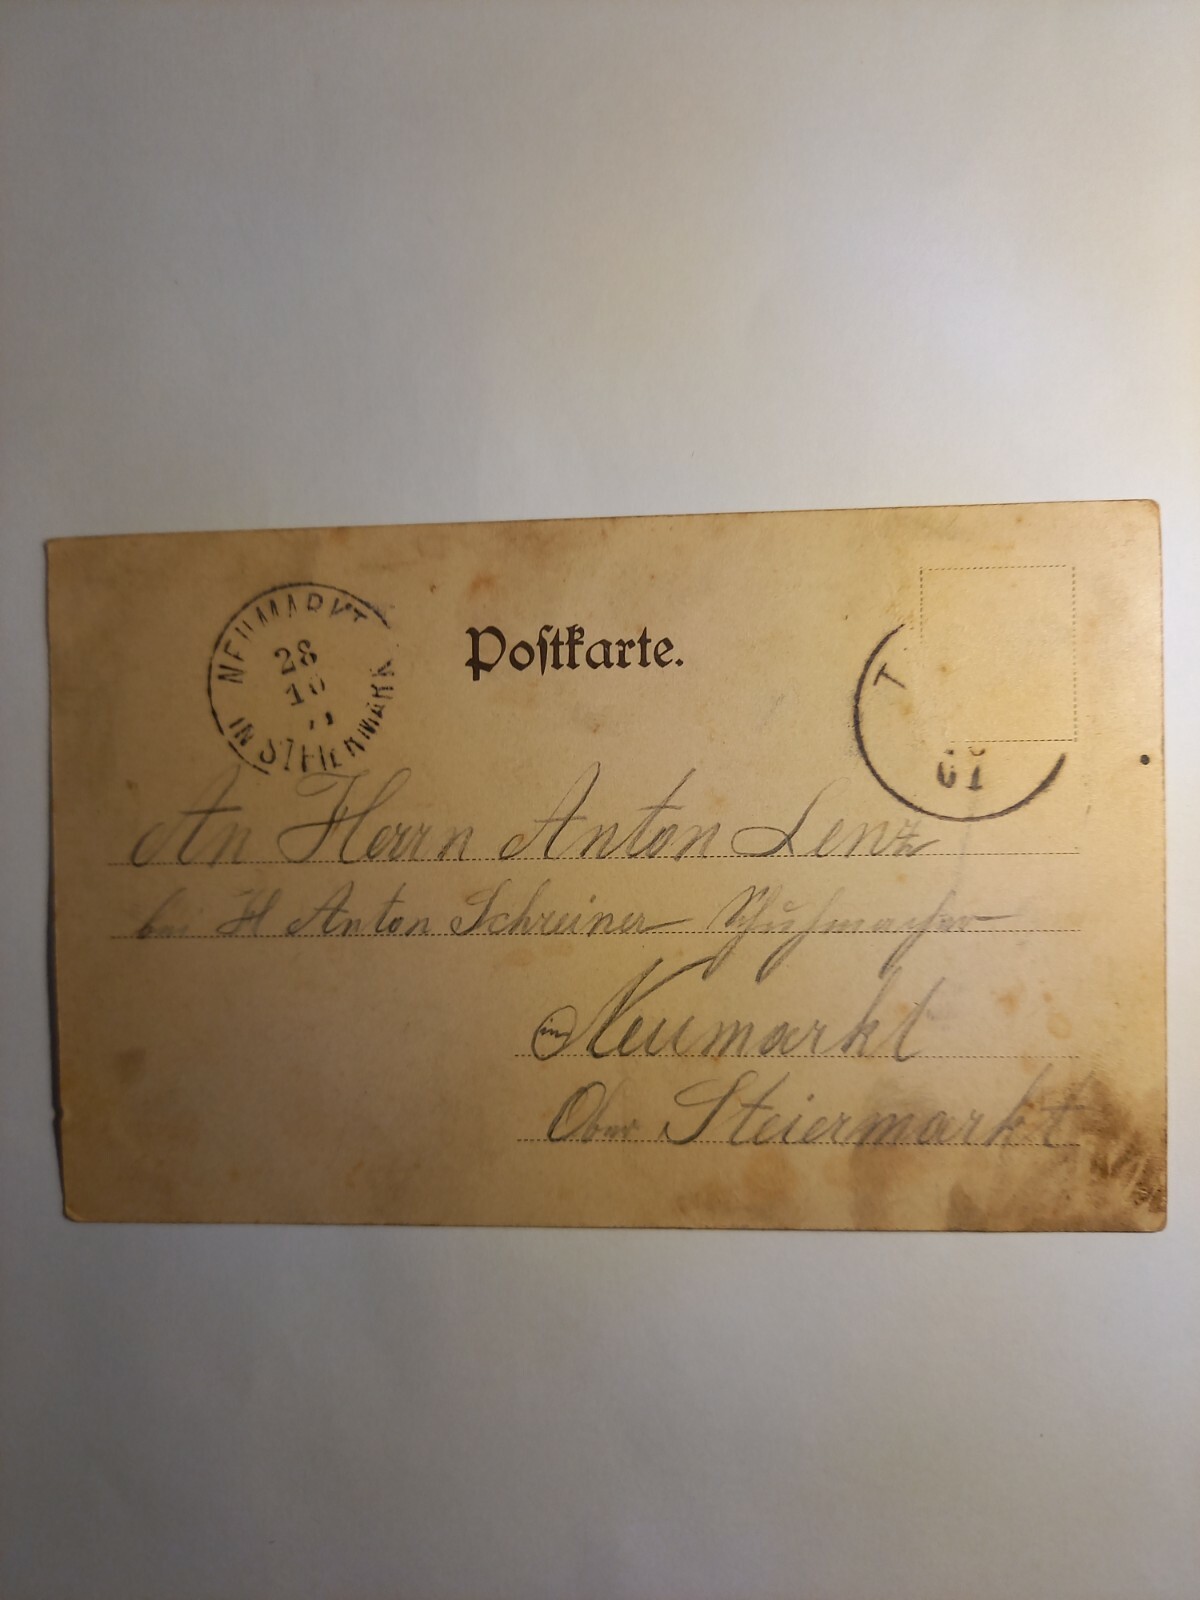 Postkarte.
NEUMARKT
IN STEIERMARK
28
10
T
01
An Herrn Anton Lenz
bei H Anton Schreiner Schuhmacher
in Neumarkt
Ober Steiermarkt